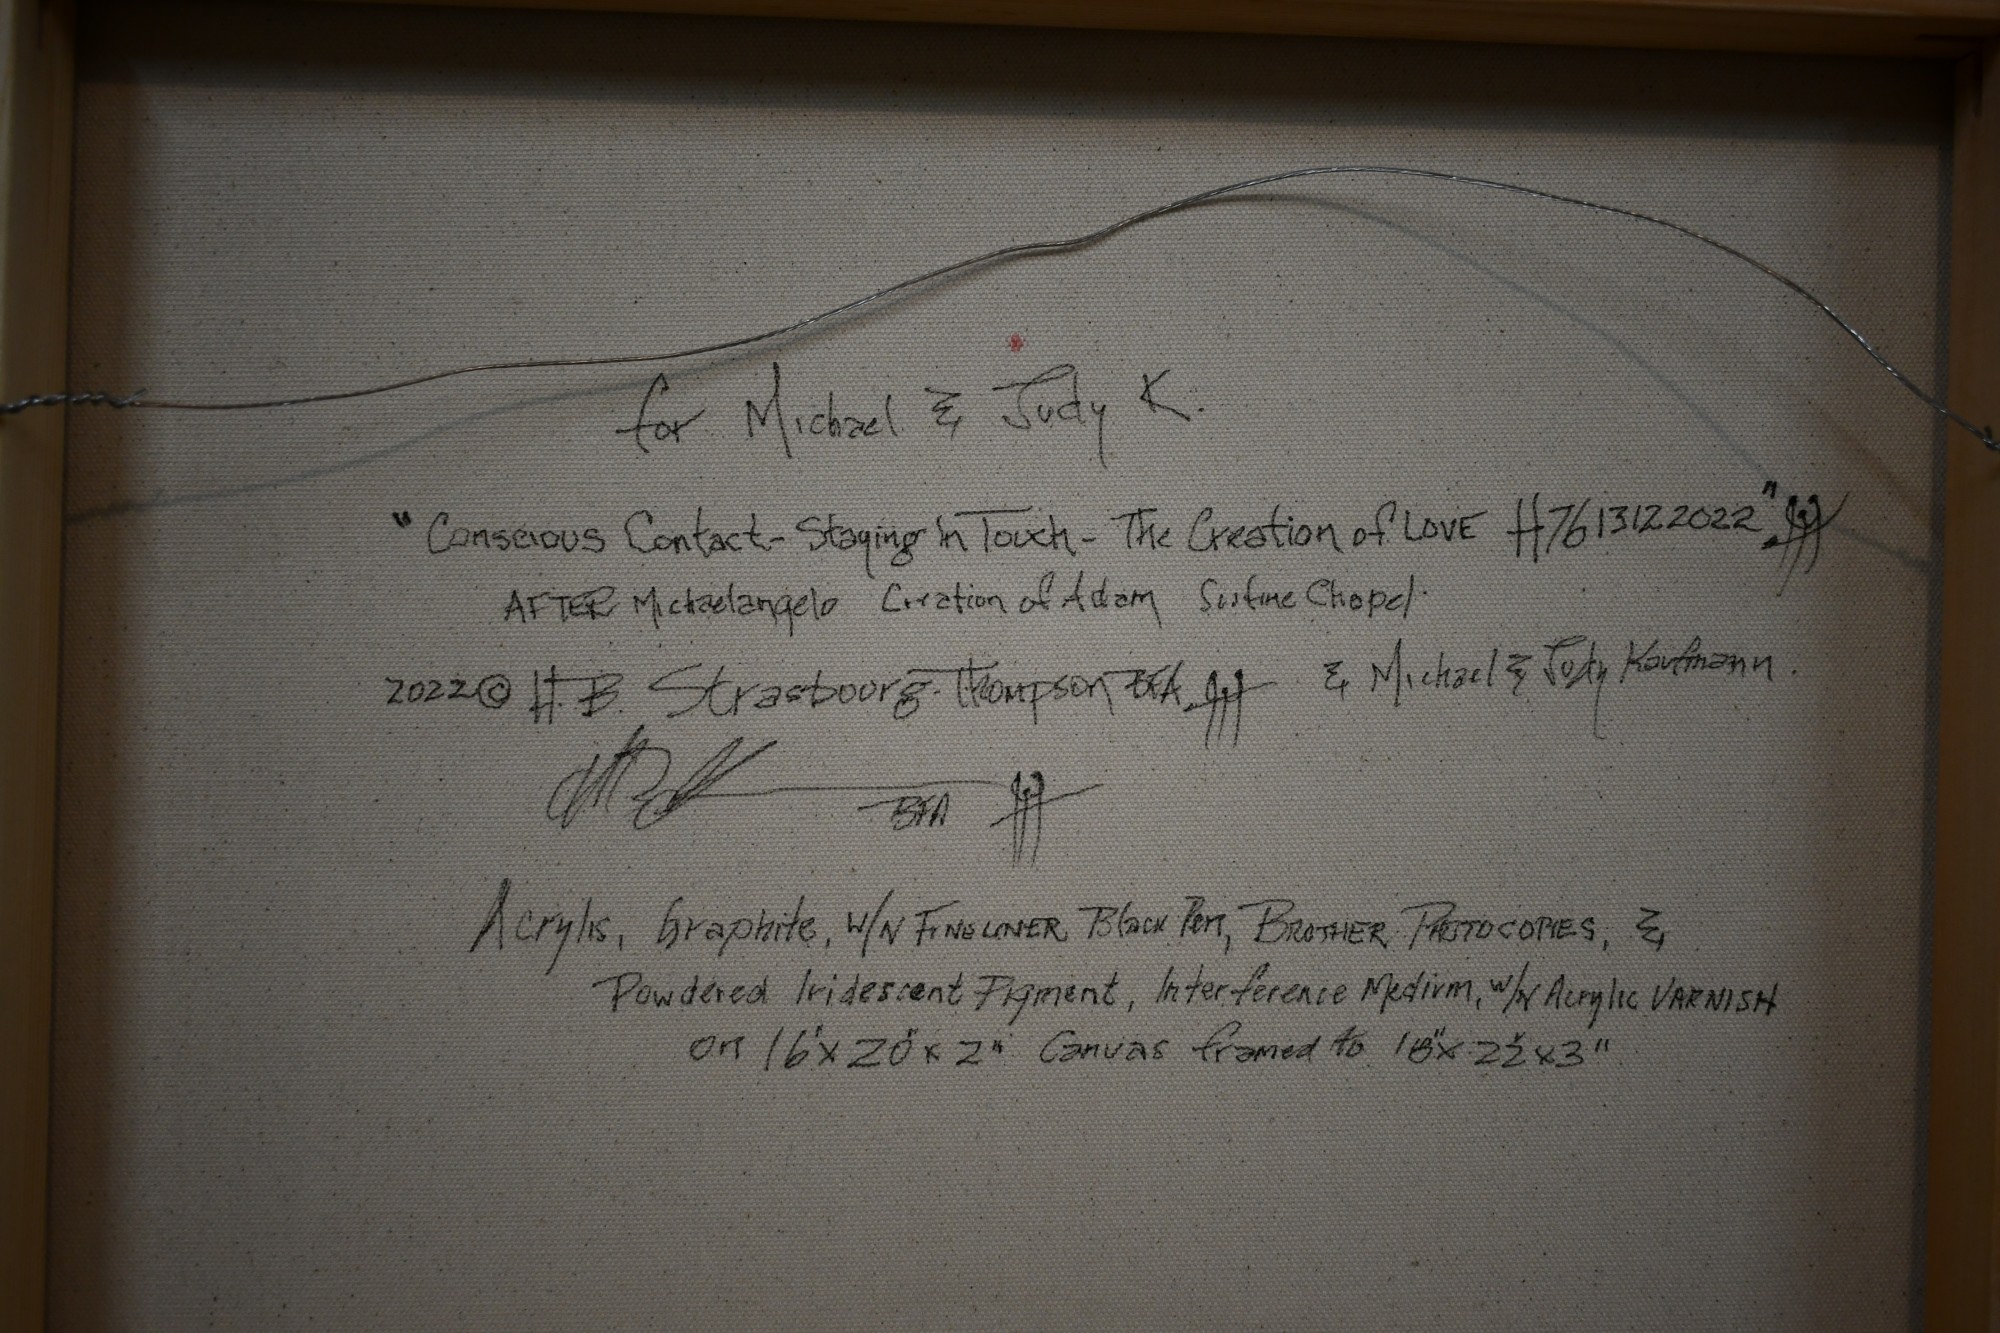 for Michael & Judy K.
"Conscious Contact - Staying In Touch - The Creation of LOVE H7613122022"
AFTER Michaelangelo Creation of Adam Sistine Chapel.
2022 © H. B. Strasbourg-Thompson BFA & Michael & Judy Kaufmann.
BFA
Acrylis, Graphite, W/N FINELINER Black Pen, BROTHER PHOTOCOPIES, &
Powdered Iridescent Pigment, Interference Medium, W/N Acrylic VARNISH
on 16"x 20"x 2" Canvas framed to 18"x 22"x3"